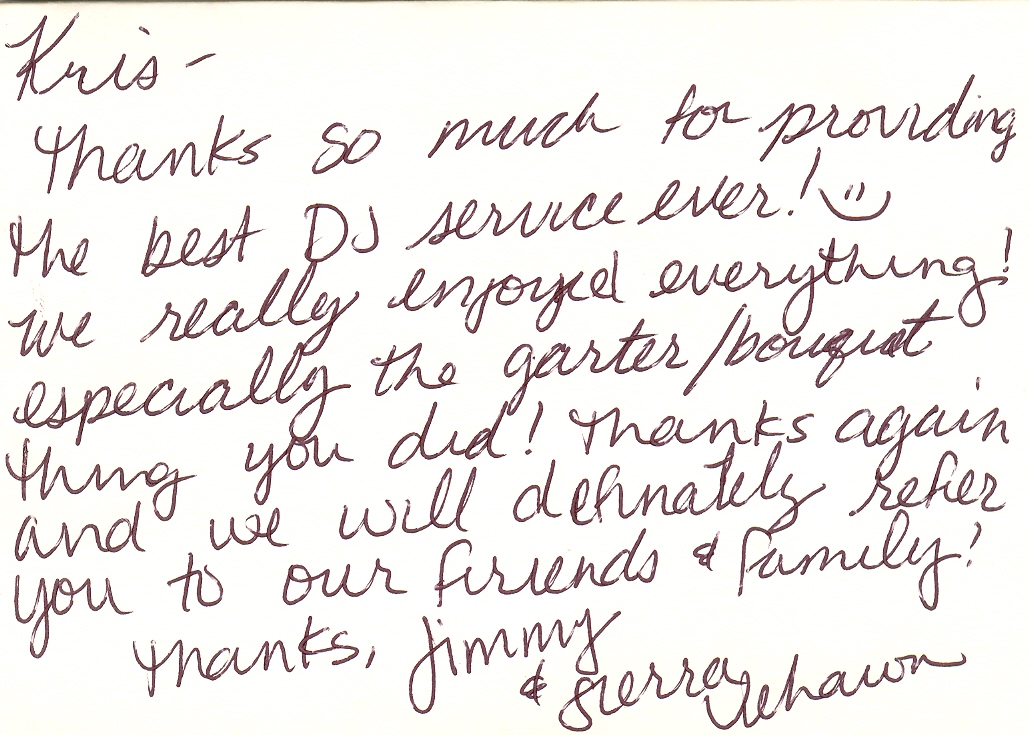 Kris-
Thanks so much for providing
the best DJ service ever! :)
we really enjoyed everything!
especially the garter/bouquet
thing you did! Thanks again
and we will definately refer
you to our friends & family!
Thanks, Jimmy
& Sierra